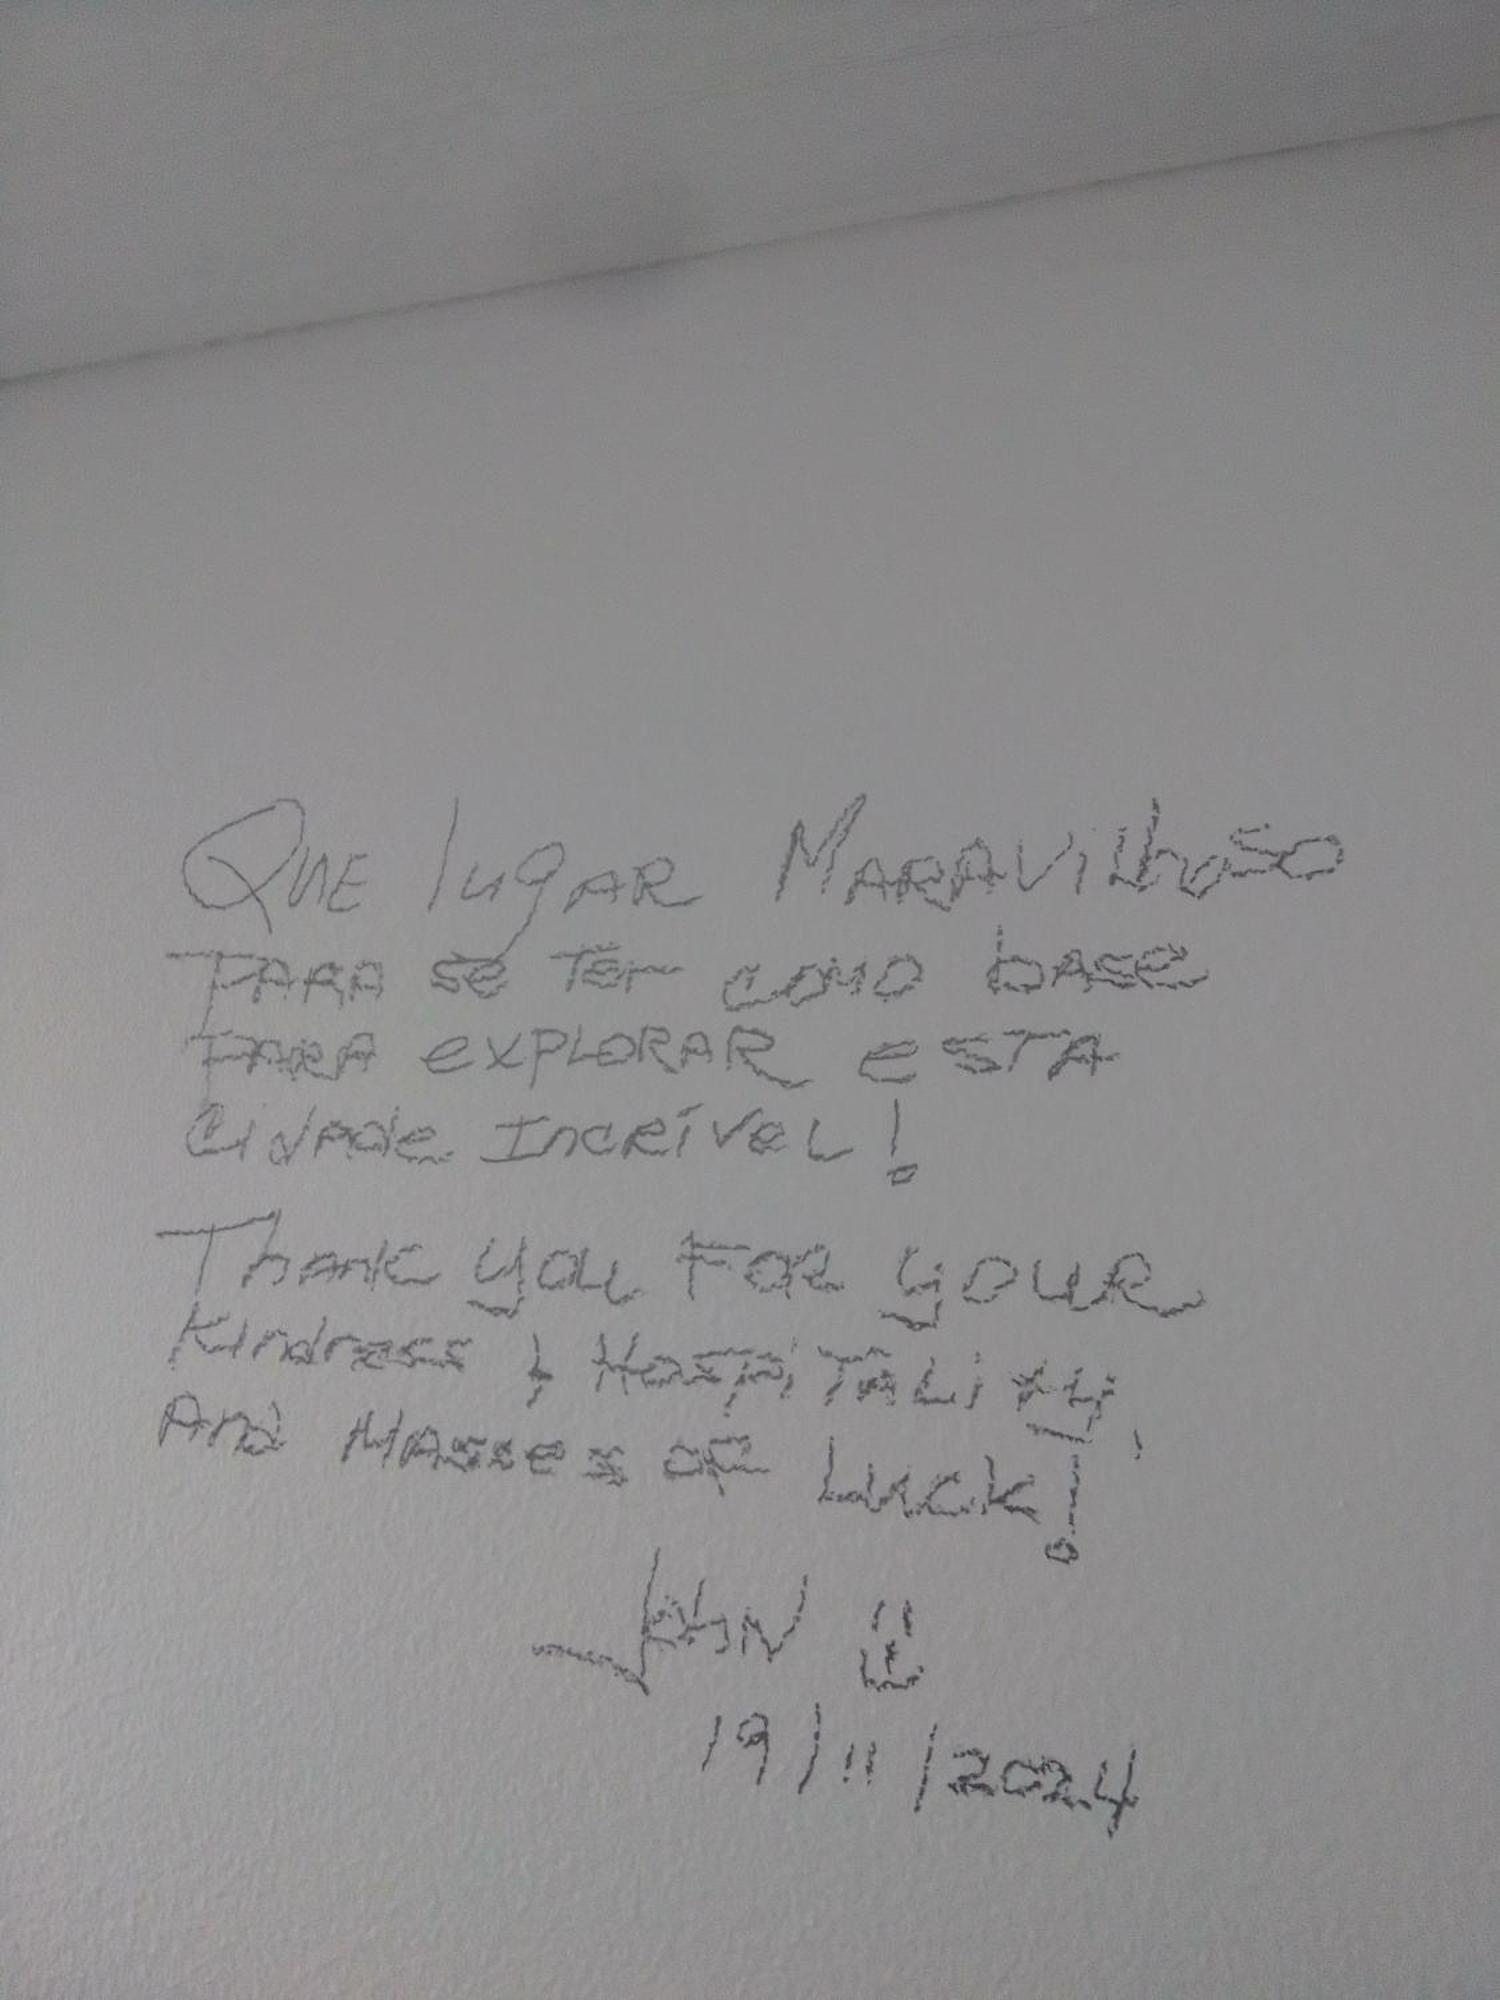 Que lugar Maravilhoso
Para se ter como base
Para explorar esta
Cidade Incrível!
Thank you For your
Kindness & Hospitality,
And Masses of Luck!
John
19/11/2024